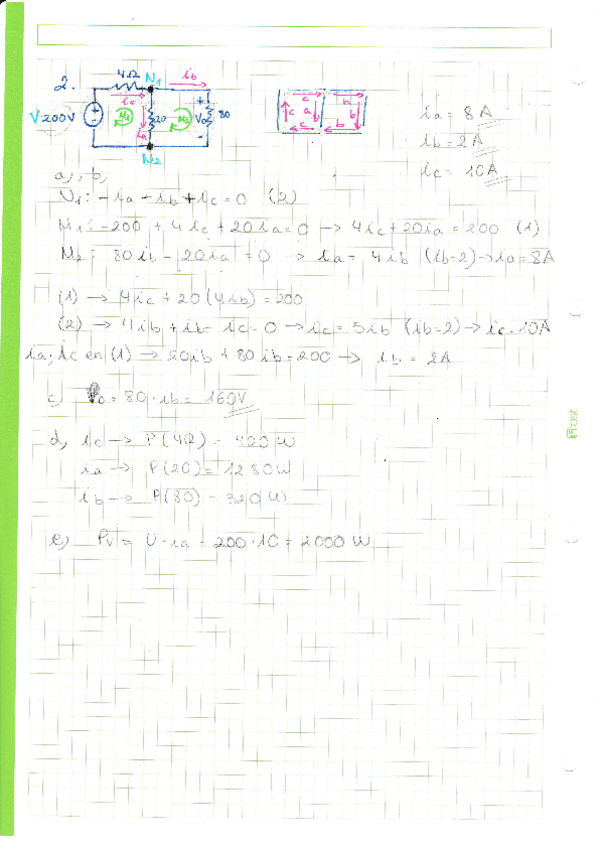 2.
4Ω
N1
ib
V=200V
ic
M1
ia
20
M2
+
V0
-
80
N2
c
b
c
a
b
c
b
ia = 8A
ib = 2A
ic = 10A
a, b,
N1: -ia - ib + ic = 0 (2)
M1: -200 + 4ic + 20ia = 0 → 4ic + 20ia = 200 (1)
M2: 80ib - 20ia = 0 → ia = 4ib (ib=2) → ia = 8A
(1) → 4ic + 20(4ib) = 200
(2) → 4ib + ib - ic = 0 → ic = 5ib (ib=2) → ic = 10A
ia; ic en (1) → 20ib + 80ib = 200 → ib = 2A
c, V0 = 80 · ib = 160V
d, ic → P(4Ω) = 400 W
ia → P(20) = 1280W
ib → P(80) = 320W
e, Pv = U · ia = 200 · 10 = 2000 W